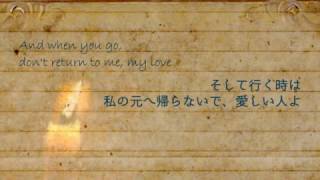 And when you go,
don't return to me, my love
そして行く時は
私の元へ帰らないで、愛しい人よ